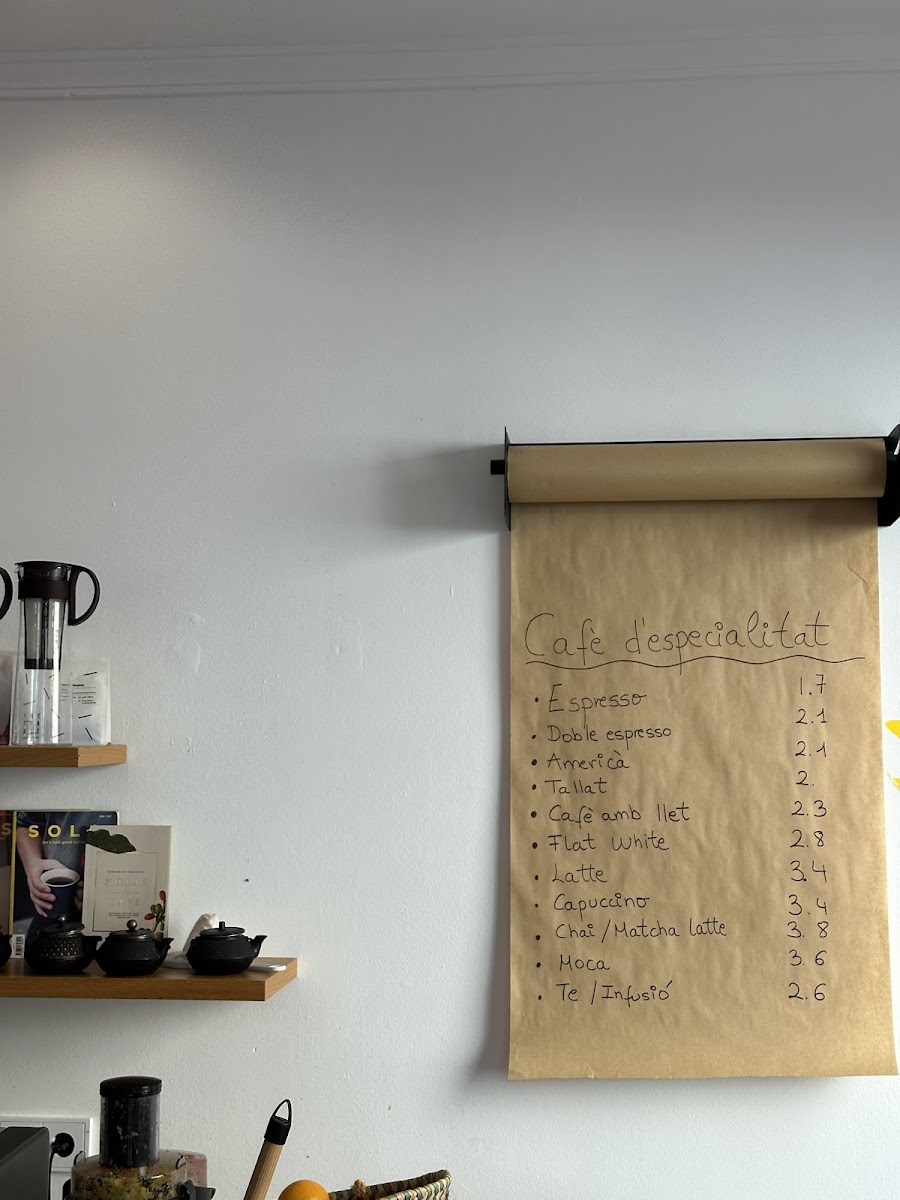 Cafè d'especialitat
• Espresso 1.7
• Doble espresso 2.1
• Americà 2.1
• Tallat 2.
• Cafè amb llet 2.3
• Flat white 2.8
• Latte 3.4
• Capuccino 3.4
• Chai / Matcha latte 3.8
• Moca 3.6
• Te / Infusió 2.6
SOL